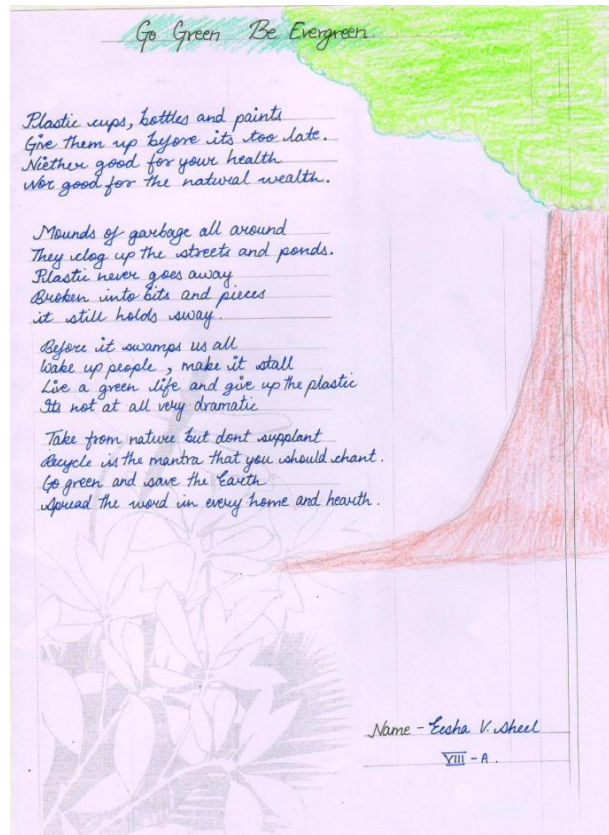 Go Green Be Evergreen.
Plastic cups, bottles and paints
Give them up before its too late.
Niether good for your health
Nor good for the natural wealth.
Mounds of garbage all around
They clog up the streets and ponds.
Plastic never goes away
Broken into bits and pieces
it still holds sway.
Before it swamps us all
Wake up people, make it stall
Live a green life and give up the plastic
Its not at all very dramatic
Take from nature but dont supplant
Recycle is the mantra that you should chant.
Go green and save the Earth
Spread the word in every home and hearth.
Name - Eesha V. Sheel
VIII - A.